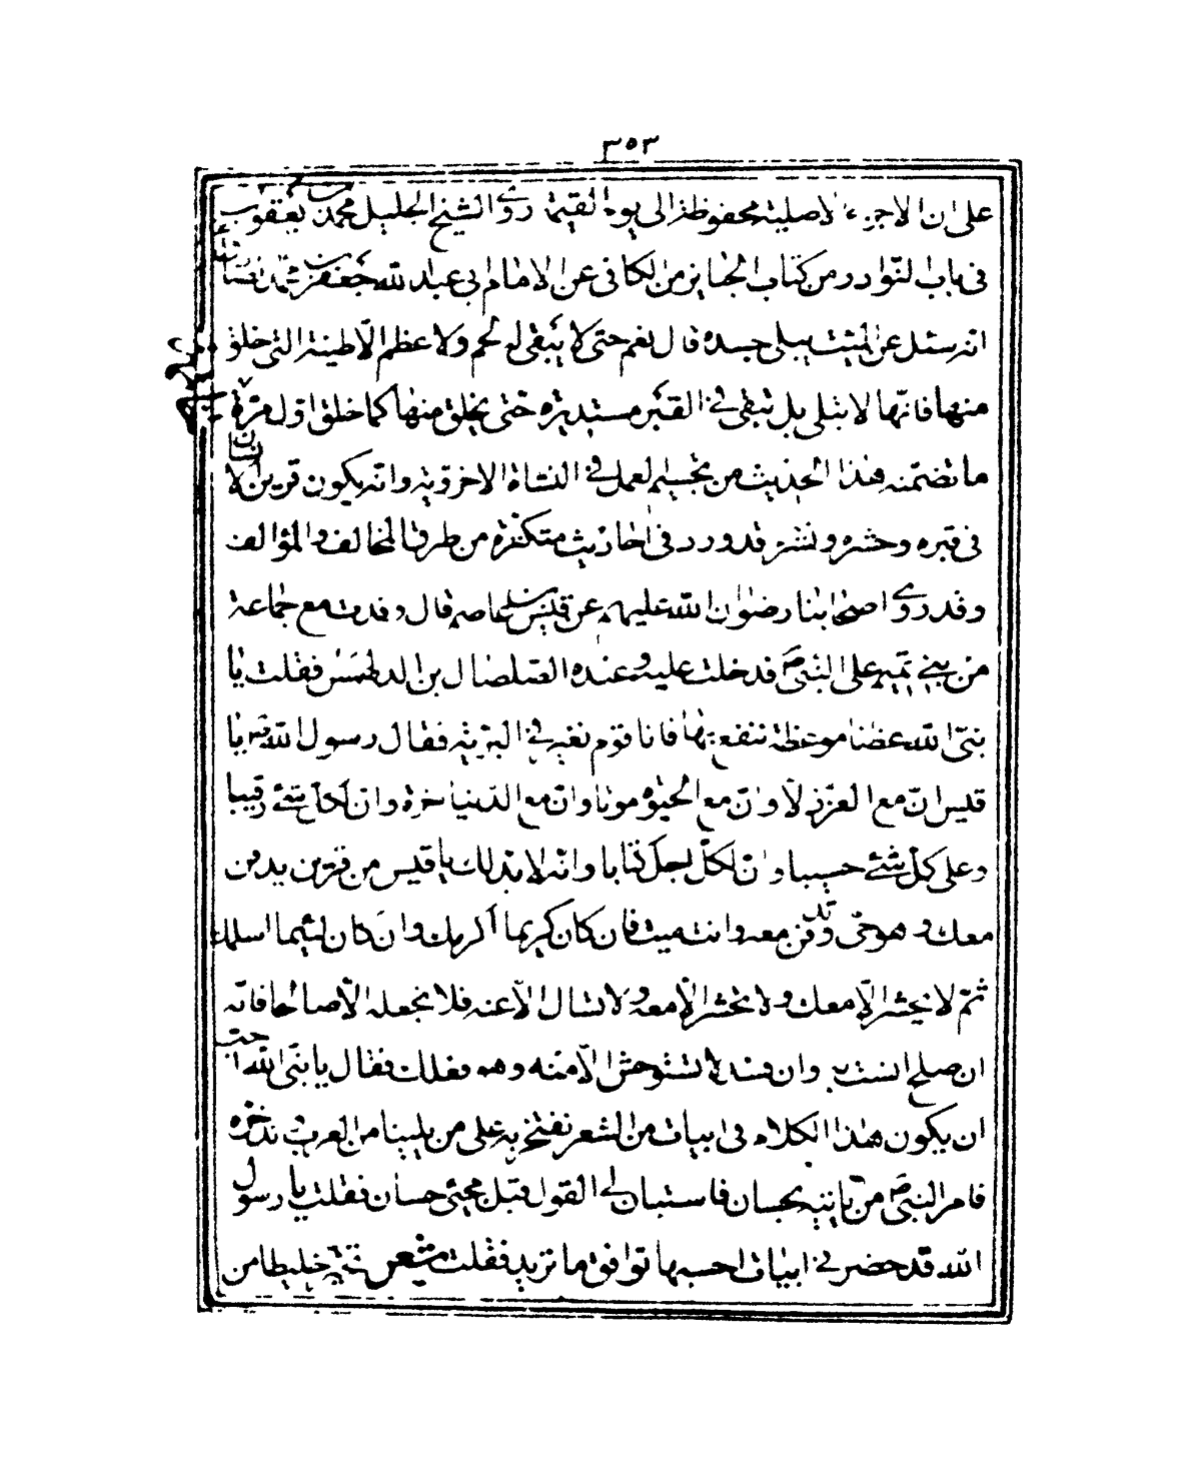 ٣٥٣
على ان الاجزاء الاصلية محفوظة الى يوم القيمة روى الشيخ الجليل محمد بن يعقوب
فى باب النوادر من كتاب الجنايز من الكافى عن الامام ابى عبد الله جعفر بن محمد الصادق
انه سئل عن الميت يبلى جسده قال نعم حتى لا يبقى له لحم ولا عظم الّا طينته التى خلق
منها فانّها لا تبلى بل تبقى فى القبر مستديرة حتى يخلق منها كما خلق اول مرّة
ما تضمنه هذا الحديث من تجسيم العمل فى النشاة الاخروية وانه يكون قرين الانسان
فى قبره وحشره ونشره قد ورد فى احاديث متكثرة من طرق المخالف والمؤالف
وقد روى اصحابنا رضوان الله عليهم عن قيس بن عاصم قال وفدت مع جماعة
من بنى تميم على النبى ص فدخلت عليه وعنده الصلصال بن الدلهمس فقلت يا
نبىّ الله عظنا موعظة ننتفع بها فانا قوم نعبر فى البرّية فقال رسول الله ص يا
قيس انّ مع العزّ ذلّا وانّ مع الحيوة موتا وانّ مع الدنيا اخرة وان لكلّ شئ رقيبا
وعلى كلّ شئ حسيبا وان لكلّ اجل كتابا وانه لا بد لك يا قيس من قرين يدفن
معك وهو حىّ وتدفن معه وانت ميت فان كان كريما اكرمك وان كان لئيما اسلمك
ثمّ لا يحشر الّا معك ولا تحشر الّا معه ولا تسال الّا عنه فلا تجعله الّا صالحا فانّه
ان صلح انست به وان فسد لا تستوحش الّا منه وهو فعلك فقال يا نبىّ الله احبّ
ان يكون هذا الكلام فى ابيات من الشعر نفتخر به على من يلينا من العرب وندّخره
فامر النبى ص من ياتيه بحسان فاستبان لى القول قبل مجئ حسان فقلت يا رسول
الله قد حضر فى ابيات احسبها توافق ما تريد فقلت شعر تخيّر خليطا من